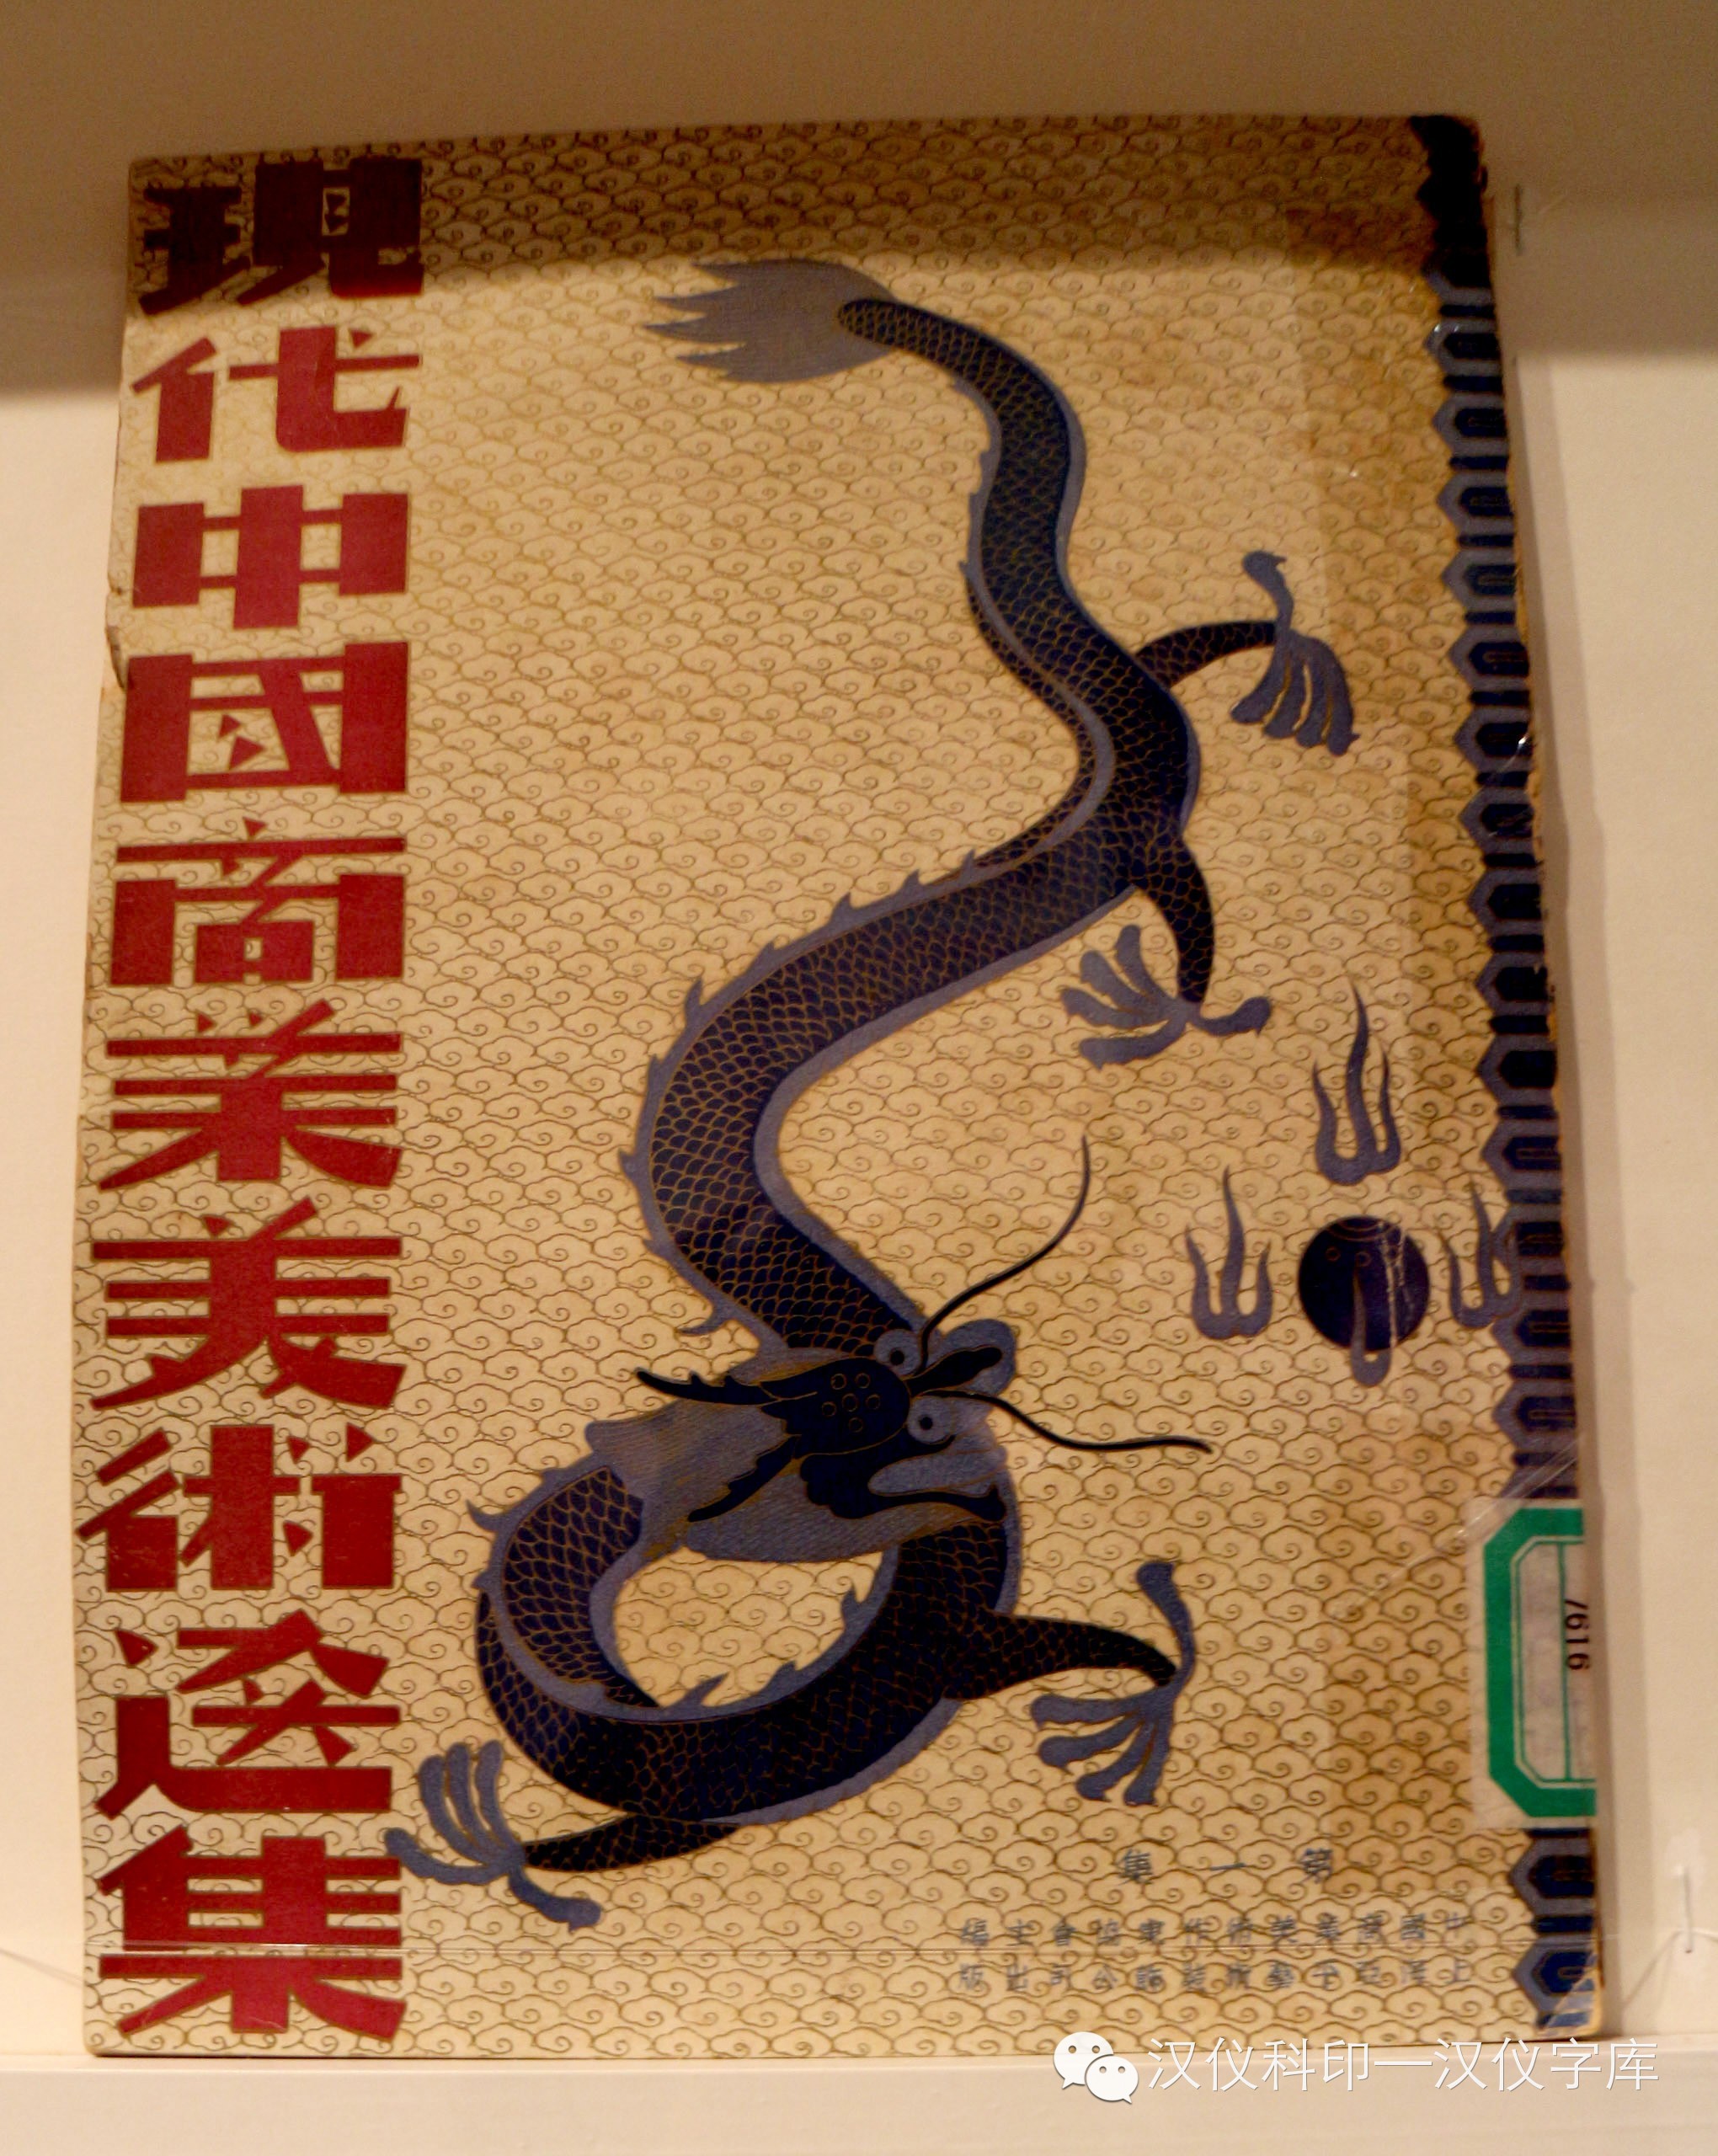 現代中國商業美術選集
第一集
中國商業美術作家協會主編
上海亞平藝術裝飾公司出版
汉仪科印—汉仪字库